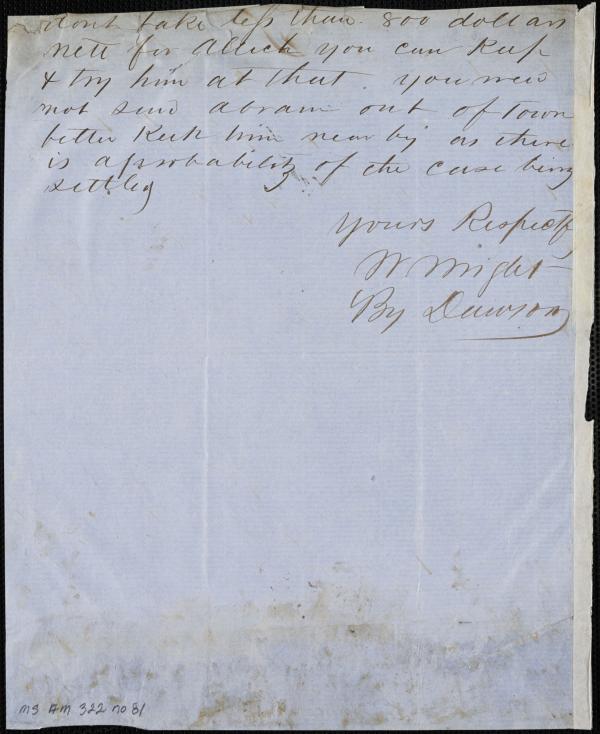 dont take less than 800 dollars
nett for you can Keep
& try him at that. you need
not send abram out of Town
better Keep him near by as there
is a probability of the case being
settled
Yours Respectfy
W Wright
By Dawson
MS AM 322 no 81